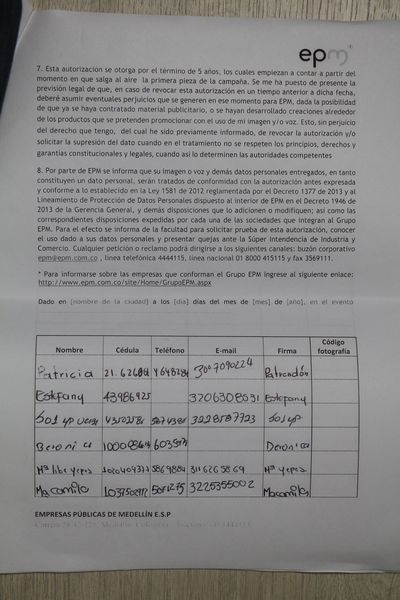 epm
7. Esta autorización se otorga por el término de 5 años, los cuales empiezan a contar a partir del
momento en que salga al aire la primera pieza de la campaña. Se me ha puesto de presente la
previsión legal de que, en caso de revocar esta autorización en un tiempo anterior a dicha fecha,
deberé asumir eventuales perjuicios que se generen en ese momento para EPM, dada la posibilidad
de que ya se haya contratado material publicitario, o se hayan desarrollado creaciones alrededor
de los productos que se pretenden promocionar con el uso de mi imagen y/o voz. Esto, sin perjuicio
del derecho que tengo, del cual he sido previamente informado, de revocar la autorización y/o
solicitar la supresión del dato cuando en el tratamiento no se respeten los principios, derechos y
garantías constitucionales y legales, cuando así lo determinen las autoridades competentes
8. Por parte de EPM se informa que su imagen o voz y demás datos personales entregados, en tanto
constituyen un dato personal, serán tratados de conformidad con la autorización antes expresada
y conforme a lo establecido en la Ley 1581 de 2012 reglamentada por el Decreto 1377 de 2013 y al
Lineamiento de Protección de Datos Personales dispuesto al interior de EPM en el Decreto 1946 de
2013 de la Gerencia General, y demás disposiciones que lo adicionen o modifiquen; así como las
correspondientes disposiciones expedidas por cada una de las sociedades que integran al Grupo
EPM. Para el efecto se informa de la facultad para solicitar prueba de esta autorización, conocer
el uso dado a sus datos personales y presentar quejas ante la Súper Intendencia de Industria y
Comercio. Cualquier petición o reclamo podrá dirigirse a los siguientes canales: buzón corporativo
epm@epm.com.co , línea telefónica 4444115, línea nacional 01 8000 415115 y fax 3569111.
* Para informarse sobre las empresas que conforman el Grupo EPM ingrese al siguiente enlace:
http://www.epm.com.co/site/Home/GrupoEPM.aspx
Dado en [nombre de la ciudad] a los [día] días del mes de [mes] de [año], en el evento
Nombre Cédula Teléfono E-mail Firma Código fotografía
Patricia 3007090224
Estefany 43986925 3206308531 Estefany
3228587723
Beronica Deronica
Mª Yepes 5869884 311 626 58 69 Mª Yepes
Ma camila 5081275 3225355002 Macamila
EMPRESAS PÚBLICAS DE MEDELLÍN E.S.P